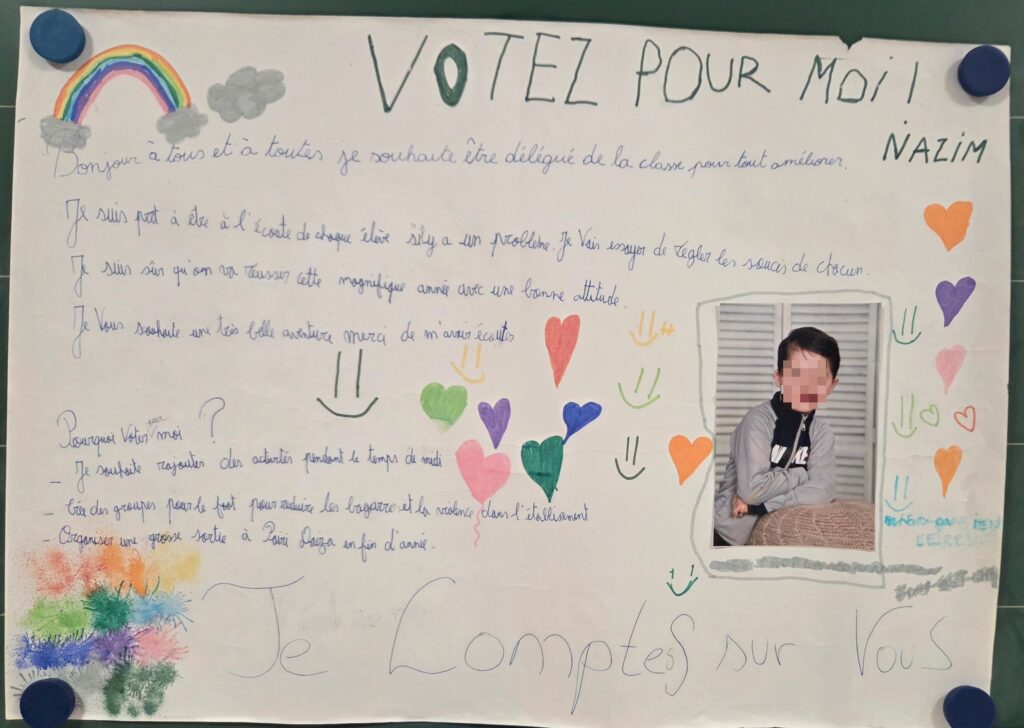 VOTEZ POUR MOI !
NAZIM
Bonjour à tous et à toutes je souhaite être délégué de la classe pour tout améliorer.
Je suis pret à être à l'écoute de chaque élève s'il y a un problème. Je Vais essayer de régler les soucis de chacun.
Je suis sûr qu'on va réussir cette magnifique année avec une bonne attitude.
Je Vous souhaite une très belle aventure merci de m'avoir écoutés
Pourquoi Voter pour moi ?
- Je souhaite rajouter des activités pendant le temps de midi
- Crée des groupes pour le foot pour réduire les bagarre et la violence dans l'établisement
- Organiser une grosse sortie à Pairi Daiza en fin d'année.
NIKE
Je Comptes sur Vous